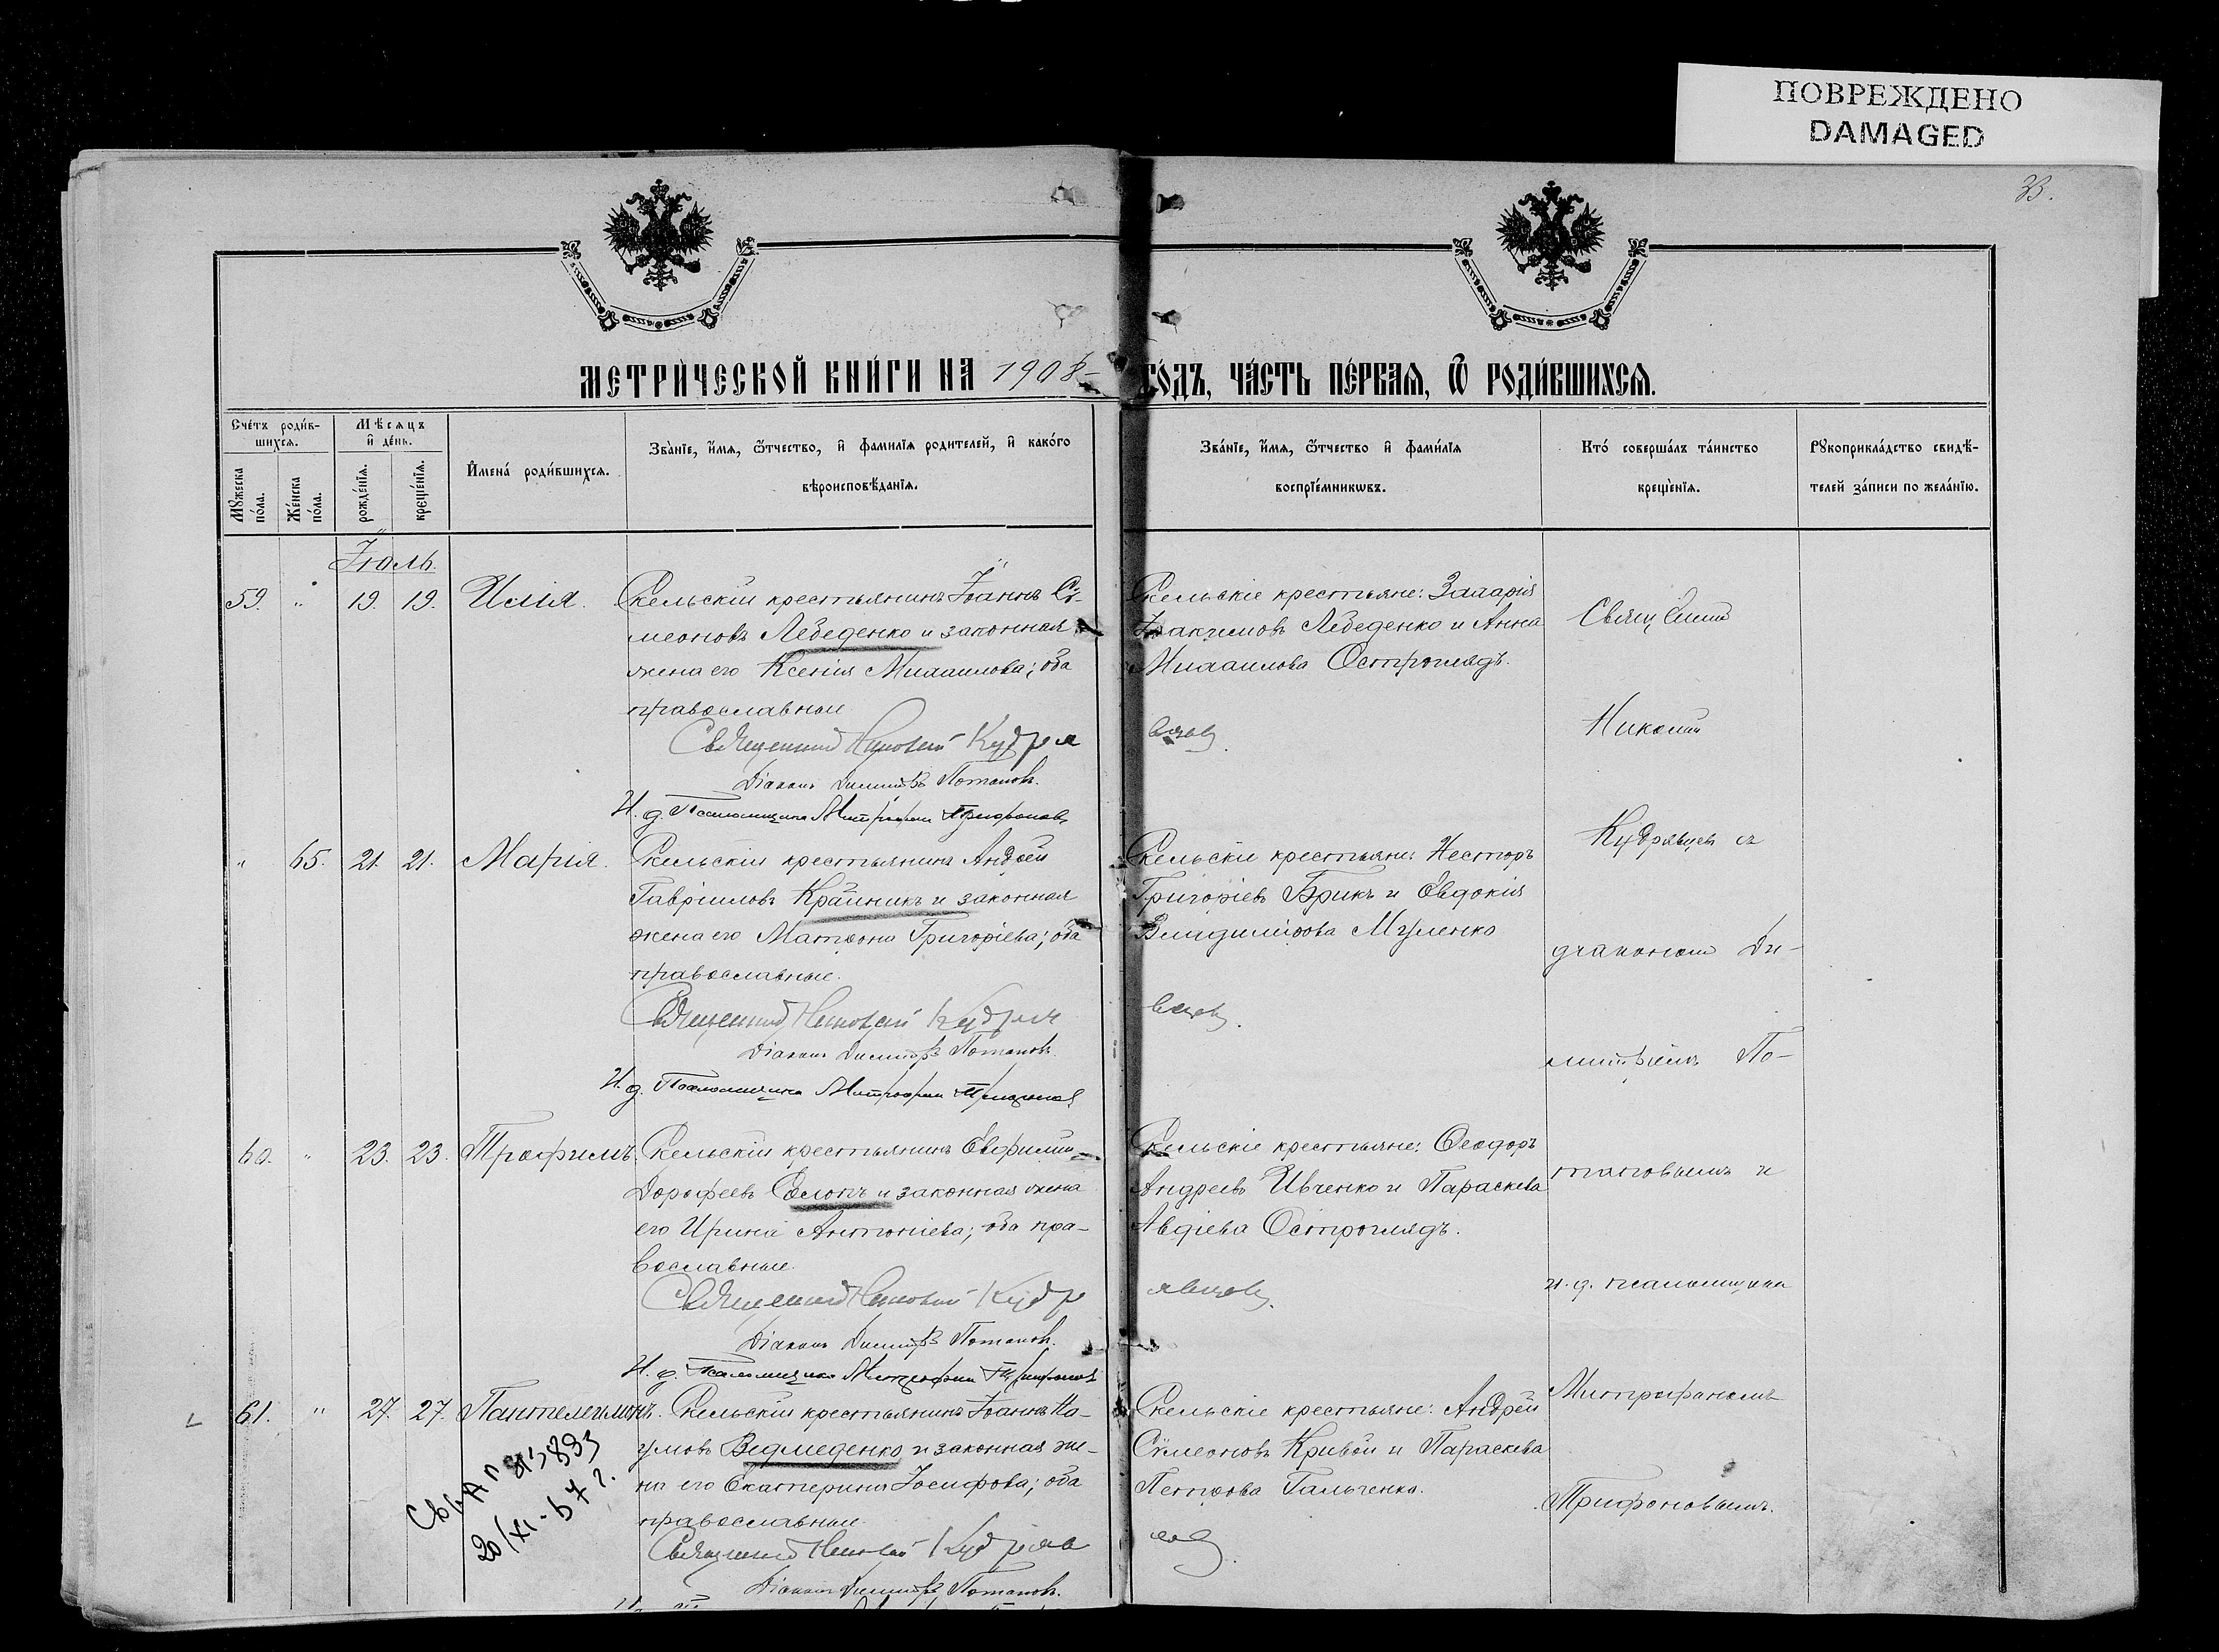 ПОВРЕЖДЕНО
DAMAGED
МЕТРИЧЕСКОЙ КНИГИ НА 1908 ГОДЪ, ЧАСТЬ ПЕРВАЯ, Ѿ РОДИВШИХСЯ.
Счетъ родив-
шихся.
Мѣсяцъ
и день.
Мужеска
пола.
Женска
пола.
рожденія.
крещенія.
Имена родившихся.
Званіе, имя, ѿтчество, и фамилія родителей, и какого
вѣроисповѣданія.
Званіе, имя, ѿтчество и фамилія
воспріемникωвъ.
Кто совершалъ таинство
крещенія.
Рукоприкладство свидѣ-
телей записи по желанію.
Іюль.
59. " 19. 19. Илія.
Скельскій крестьянинъ Іоаннъ Сѵ-
меоновъ Лебеденко и законная
жена его Ксенія Михаилова; оба
православные
Священникъ Николай Кудрявцевъ
Діаконъ Димитрій Потаповъ.
И. д. Псаломщика Митрофанъ Трифоновъ
Скельскіе крестьяне: Захарія
Іоакимовъ Лебеденко и Анна
Михаилова Остроглядъ.
" 65. 21. 21. Марія.
Скельскій крестьянинъ Андрей
Гавріиловъ Крайникъ и законная
жена его Матрона Григоріева; оба
православные.
Священникъ Николай Кудрявцевъ.
Діаконъ Димитрій Потаповъ.
И. д. Псаломщика Митрофанъ Трифоновъ
Скельскіе крестьяне: Несторъ
Григоріевъ Брикъ и Евдокія
Владимірова Муленко
60. " 23. 23. Трофимъ.
Скельскій крестьянинъ Евфимій
Дорофеевъ Солопъ и законная жена
его Ирина Антоніева; оба пра-
вославные.
Священникъ Николай Кудрявцевъ.
Діаконъ Димитрій Потаповъ.
И. д. Псаломщика Митрофанъ Трифоновъ
Скельскіе крестьяне: Ѳеодоръ
Андреевъ Ивченко и Параскева
Авдіева Остроглядъ.
61. " 27. 27. Пантелеимонъ.
Скельскій крестьянинъ Іоаннъ На-
умовъ Ведмеденко и законная же-
на его Екатерина Іосифова; оба
православные.
Священникъ Николай Кудрявцевъ.
Діаконъ Димитрій Потаповъ.
Скельскіе крестьяне: Андрей
Сѵмеоновъ Кривой и Параскева
Петрова Гальченко.
Священникъ
Николай
Кудрявцевъ съ
діакономъ Ди-
митріемъ По-
таповымъ и
и. д. псаломщика
Митрофаномъ
Трифоновымъ.